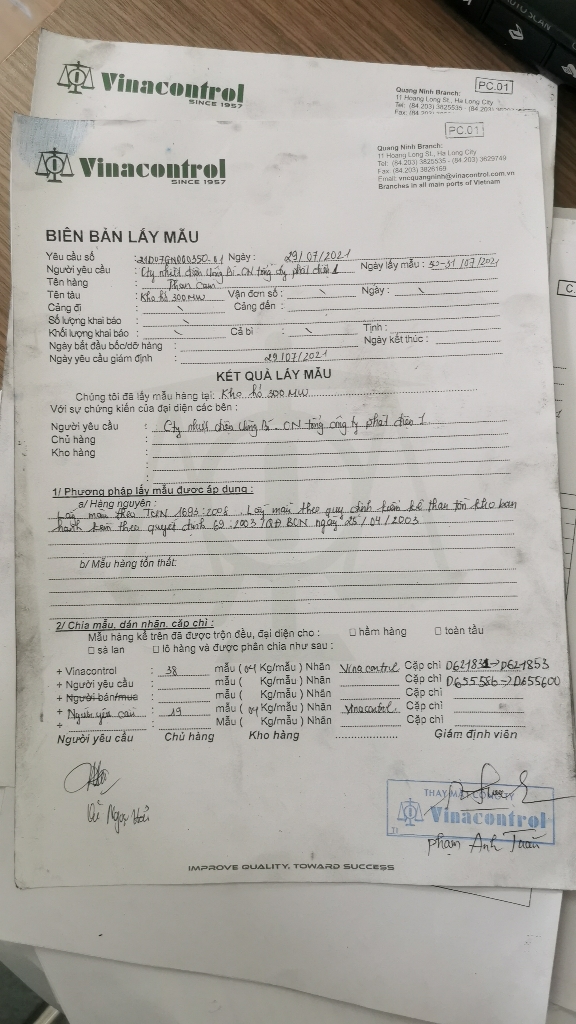 AUTO SCAN
Vinacontrol
SINCE 1957
PC.01
Quang Ninh Branch:
11 Hoang Long St., Ha Long City
Tel: (84.203) 3825535 -
PC.01
Vinacontrol
SINCE 1957
Quang Ninh Branch:
11 Hoang Long St., Ha Long City
Tel: (84.203) 3825535 - (84.203) 3829749
Fax: (84.203) 3826169
Email: vncquangninh@vinacontrol.com.vn
Branches in all main ports of Vietnam
BIÊN BẢN LẤY MẪU
Yêu cầu số : Ngày : 29/07/2021
Người yêu cầu : Cty nhiệt điện Uông Bí - CN tổng cty phát điện 1 Ngày lấy mẫu : 30-31/07/2021
Tên hàng : Than cám
Tên tàu : Kho hở 300 MW Vận đơn số : \ Ngày : \
Cảng đi : \ Cảng đến :
Số lượng khai báo : \
Khối lượng khai báo : \ Cả bì : \ Tịnh :
Ngày bắt đầu bốc/dỡ hàng : Ngày kết thúc :
Ngày yêu cầu giám định : 29/07/2021
KẾT QUẢ LẤY MẪU
Chúng tôi đã lấy mẫu hàng tại: Kho hở 300 MW
Với sự chứng kiến của đại diện các bên :
Người yêu cầu : Cty nhiệt điện Uông Bí - CN tổng công ty phát điện 1
Chủ hàng :
Kho hàng :
1/ Phương pháp lấy mẫu được áp dụng :
a/ Hàng nguyên :
Lấy mẫu theo TCVN 1693:2008. Lấy mẫu theo quy định kiểm kê than tồn kho ban
hành kèm theo quyết định 69:2003/QĐ BCN ngày 25/04/2003
b/ Mẫu hàng tổn thất:
2/ Chia mẫu, dán nhãn, cặp chì :
Mẫu hàng kể trên đã được trộn đều, đại diện cho : □ hầm hàng □ toàn tầu
□ sà lan □ lô hàng và được phân chia như sau :
+ Vinacontrol : 38 mẫu (04 Kg/mẫu) Nhãn Vinacontrol Cặp chì D621853
+ Người yêu cầu : mẫu ( Kg/mẫu) Nhãn Cặp chì D655586→D655600
+ Người bán/mua : mẫu ( Kg/mẫu) Nhãn Cặp chì
+ Người yêu cầu : 19 mẫu (04 Kg/mẫu) Nhãn Vinacontrol Cặp chì
+ : Mẫu ( Kg/mẫu) Nhãn Cặp chì
Người yêu cầu Chủ hàng Kho hàng .............. Giám định viên
THAY MẶT CÔNG TY
Vinacontrol
Phạm Anh Tuấn
IMPROVE QUALITY, TOWARD SUCCESS